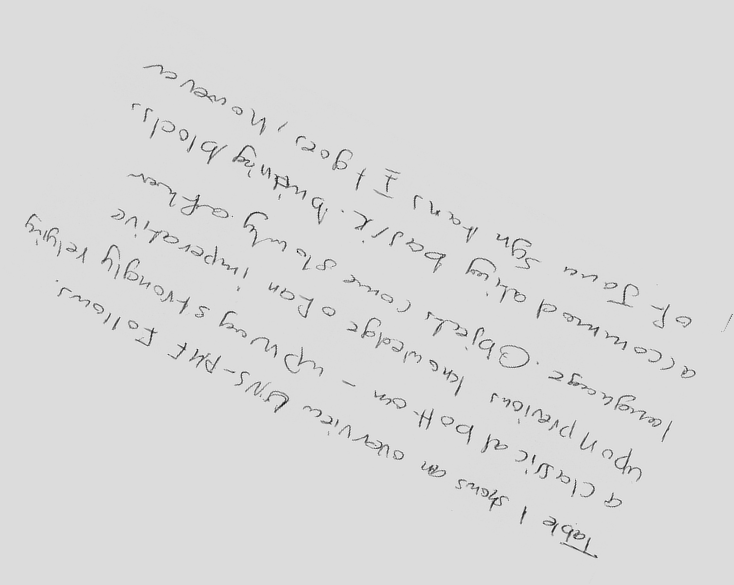 Table 1 shows an overview UNS-PMF Follows.
a classical bott om - up way strongly relying
upon previous knowledge of an imperative
language. Objects come slowly after
accommodating basic. building blocks.
of Java Syn taxs It goes, however